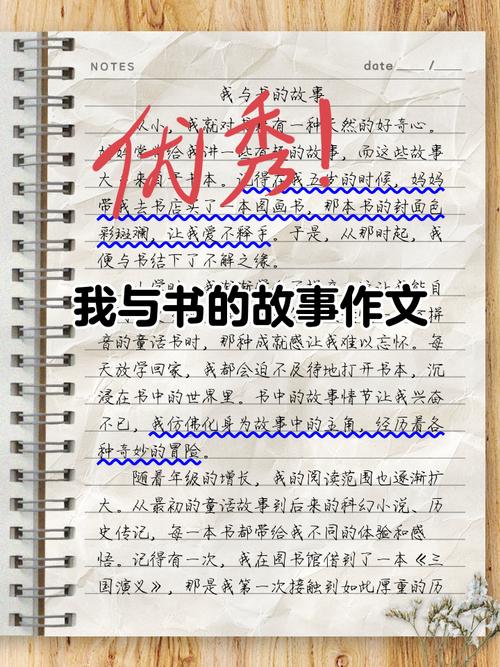 NOTES
date /
我与书的故事
优秀！
从小，我就对书有一种天然的好奇心。
妈妈常给我讲一些有趣的故事，而这些故事
大来自于书本。记得在我五岁的时候，妈妈
带我去书店买了一本图画书，那本书的封面色
彩斑斓，让我爱不释手。于是，从那时起，我
便与书结下了不解之缘。
我与书的故事作文
音的童话书时，那种成就感让我难以忘怀。每
天放学回家，我都会迫不及待地打开书本，沉
浸在书中的世界里。书中的故事情节让我兴奋
不已，我仿佛化身为故事中的主角，经历着各
种奇妙的冒险。
随着年级的增长，我的阅读范围也逐渐扩
大。从最初的童话故事到后来的科幻小说、历
史传记，每一本书都带给我不同的体验和感
悟。记得有一次，我在图书馆借到了一本《三
国演义》，那是我第一次接触到如此厚重的历